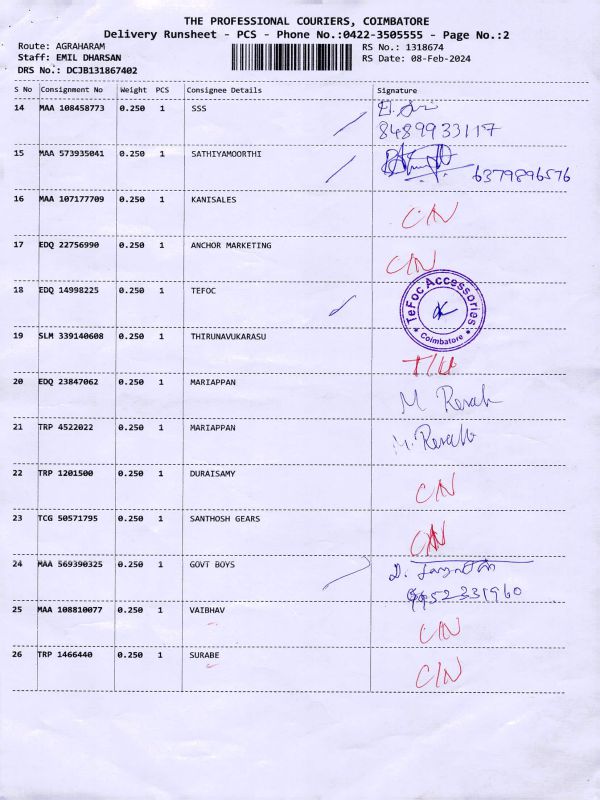 THE PROFESSIONAL COURIERS, COIMBATORE
Delivery Runsheet - PCS - Phone No.:0422-3505555 - Page No.:2
Route: AGRAHARAM RS No.: 1318674
Staff: EMIL DHARSAN RS Date: 08-Feb-2024
DRS No.: DCJB131867402
S No Consignment No Weight PCS Consignee Details Signature
14 MAA 108458773 0.250 1 SSS
8489933117
15 MAA 573935041 0.250 1 SATHIYAMOORTHI
6379896576
16 MAA 107177709 0.250 1 KANISALES C/N
17 EDQ 22756990 0.250 1 ANCHOR MARKETING C/N
18 EDQ 14998225 0.250 1 TEFOC TeFoc Accessories
Coimbatore
19 SLM 339140608 0.250 1 THIRUNAVUKARASU
20 EDQ 23847062 0.250 1 MARIAPPAN M
21 TRP 4522022 0.250 1 MARIAPPAN M.
22 TRP 1201500 0.250 1 DURAISAMY C/N
23 TCG 50571795 0.250 1 SANTHOSH GEARS C/N
24 MAA 569390325 0.250 1 GOVT BOYS D.
25 MAA 108810077 0.250 1 VAIBHAV C/N
26 TRP 1466440 0.250 1 SURABE C/N